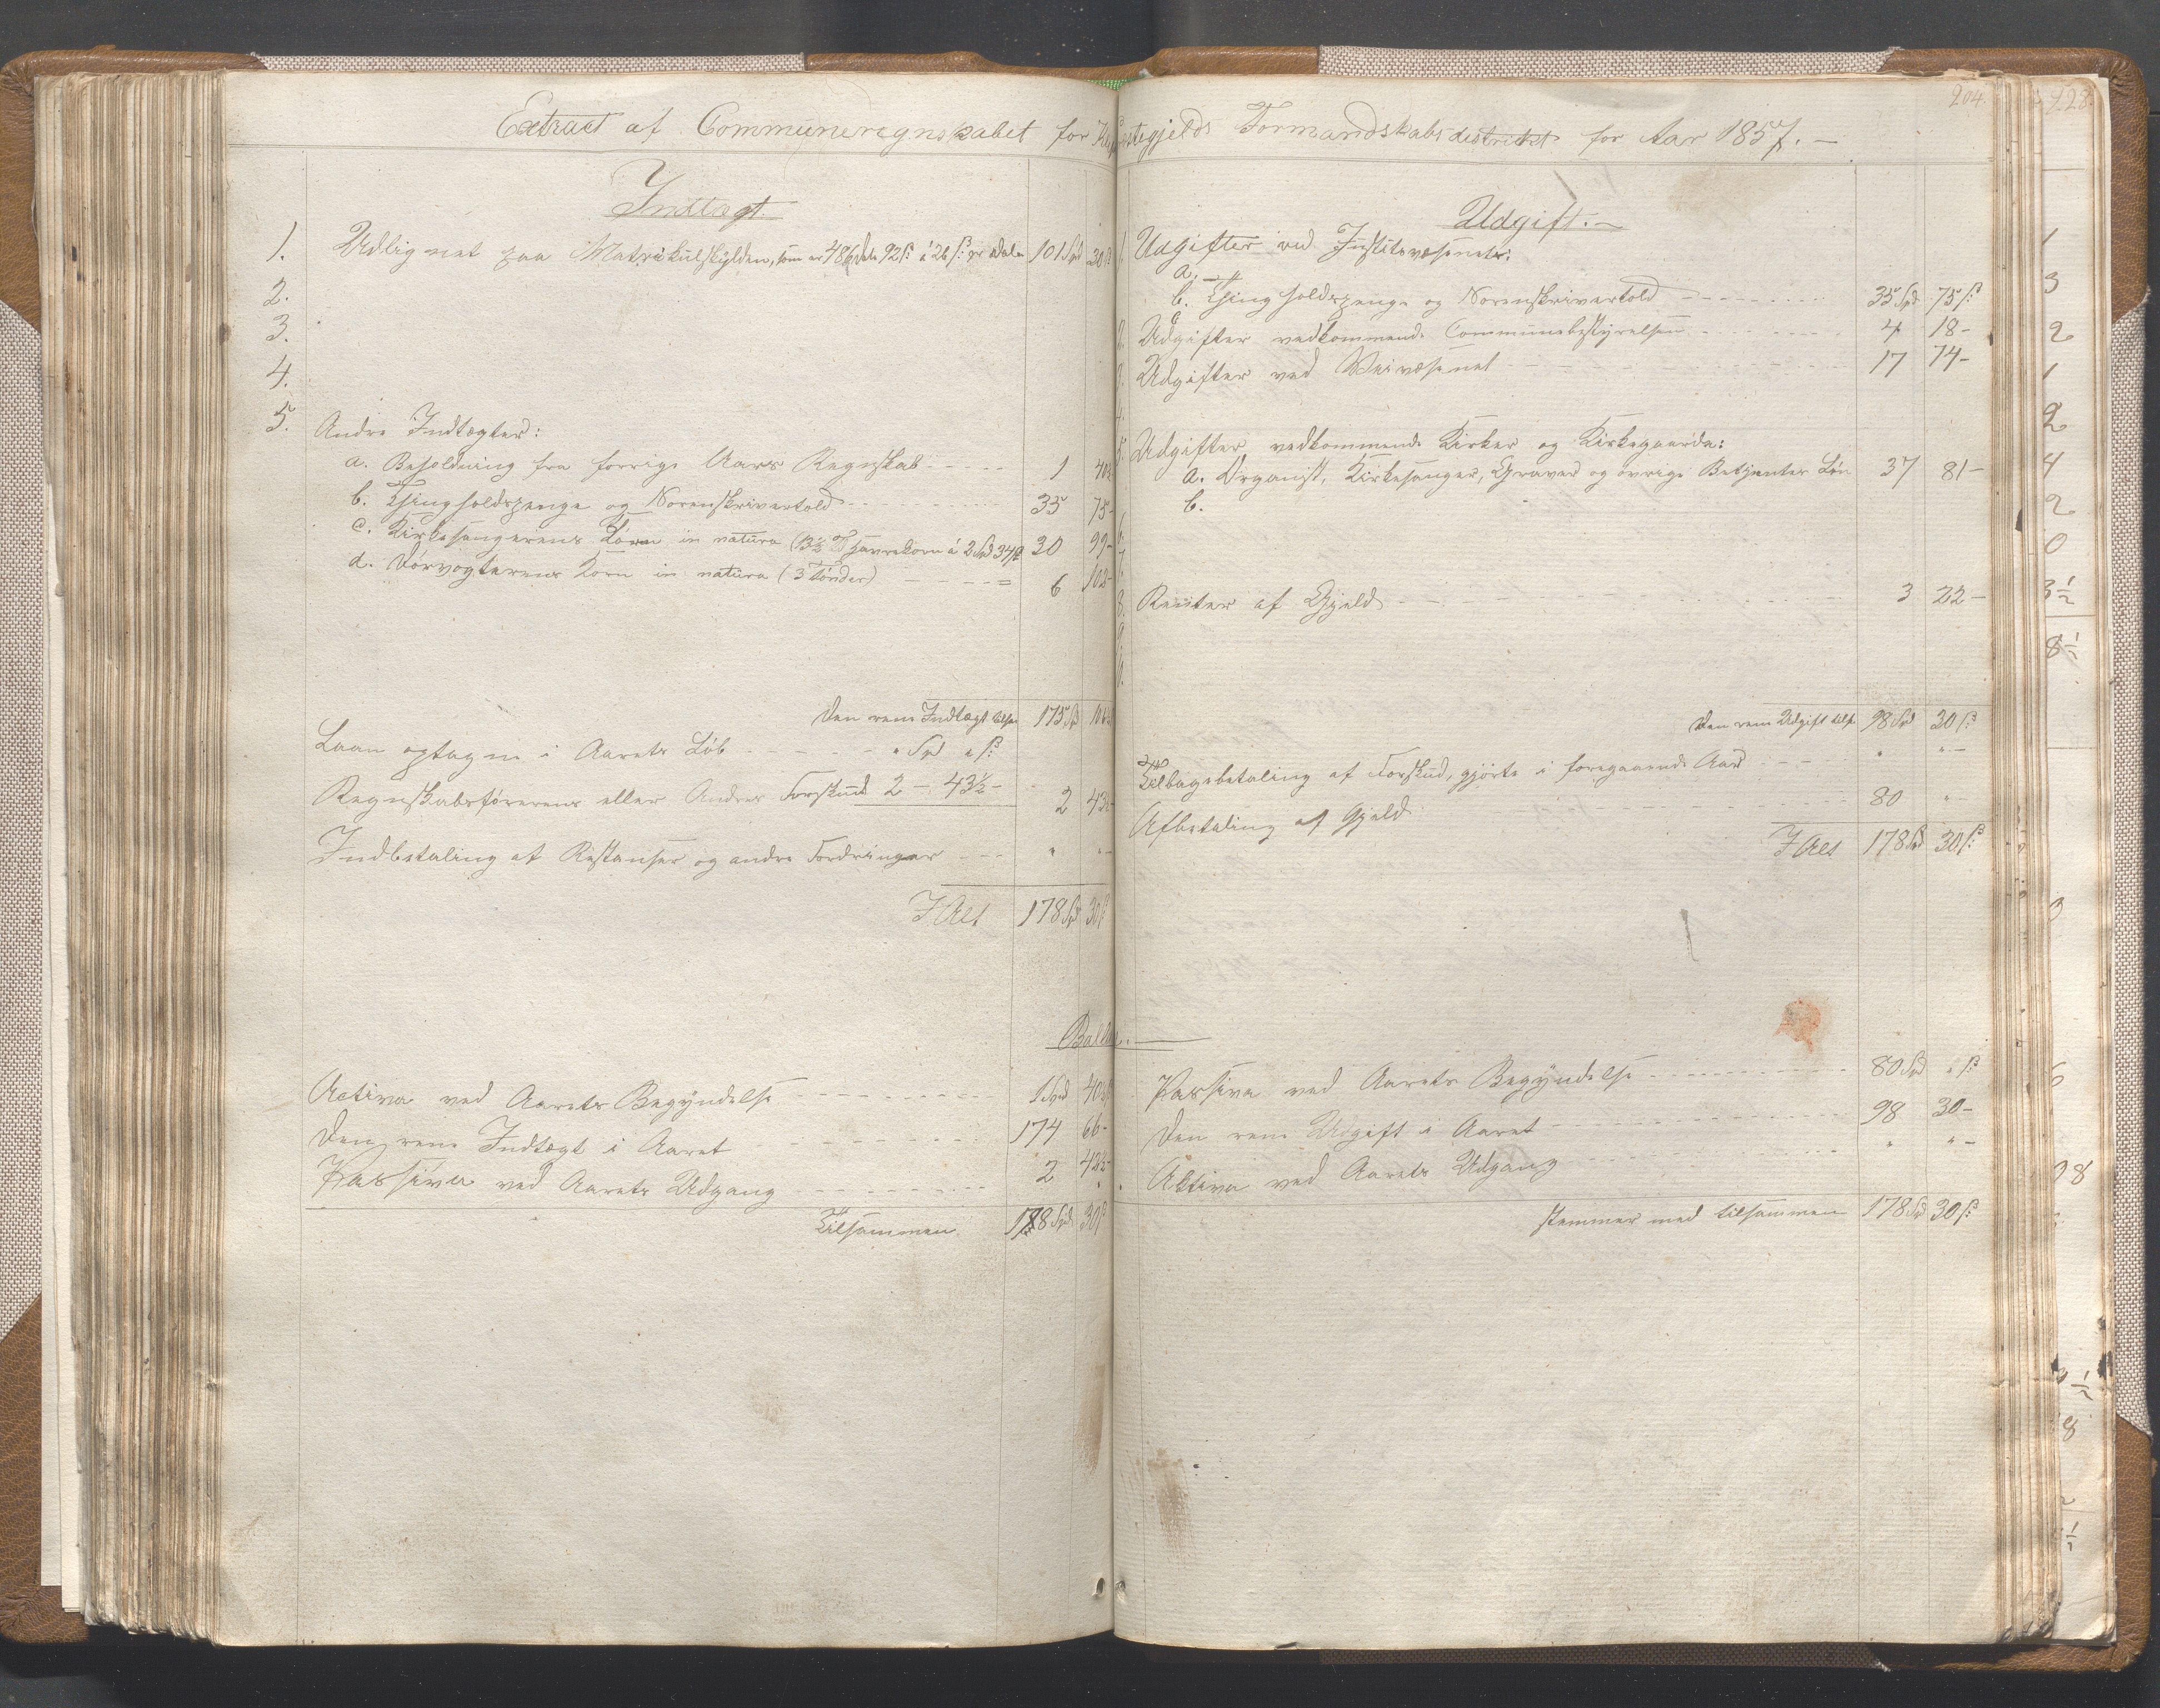 204.
Extract af Communeregnskabet for Præstegjelds Formandskabsdistrikt for Aar 1857. —
Indtægt
1. Udlignet paa Matrikulskylden, som er 486 Daler 92 ß à 26 ß pr Daler 101 Spd 30 ß
2.
3.
4.
5. Andre Indtægter:
a. Beholdning fra forrige Aars Regnskab 1 40½
b. Thingholdspenge og Sorenskrivertold 35 75-
c. Kirkesangerens Korn in natura (13½ Tø Havrekorn à 2 Spd 34 ß 30 99-
d. Dørvogterens Korn in natura (3 Tønder) 6 102-
Den rene Indtægt tilsm 175 Spd 106½
Laan optagne i Aarets Løb " Spd " ß
Regnskabsførerens eller Andres Forskud 2 - 43½ - 2 43½-
Indbetaling af Restanser og andre Fordringer " "-
I Alt 178 Spd 30 ß
Udgift. —
1. Udgifter ved Justitsvæsenet:
a. —
b. Thingholdspenge og Sorenskrivertold 35 Spd 75 ß
c
2. Udgifter vedkommende Communebestyrelsen 4 18-
3. Udgifter ved Veivæsenet 17 74-
4.
5. Udgifter vedkommende Kirker og Kirkegaarde:
a. Organist, Kirkesanger, Graver og øvrige Betjenters Løn 37 81-
b.
6.
7.
8. Renter af Gjeld 3 22-
9.
Den rene Udgift tilsm 98 Spd 30 ß
Tilbagebetaling af Forskud, gjorte i foregaaende Aar " "-
Afbetaling af Gjeld 80 "
I Alt 178 Spd 30 ß
Balance. —
Activa ved Aarets Begyndelse 1 Spd 40½ ß
Den rene Indtægt i Aaret 174 66-
Passiva ved Aarets Udgang 2 43½-
Tilsammen 178 Spd 30 ß
Passiva ved Aarets Begyndelse 80 Spd " ß
Den rene Udgift i Aaret 98 30-
Aktiva ved Aarets Udgang " "-
stemmer med tilsammen 178 Spd 30 ß